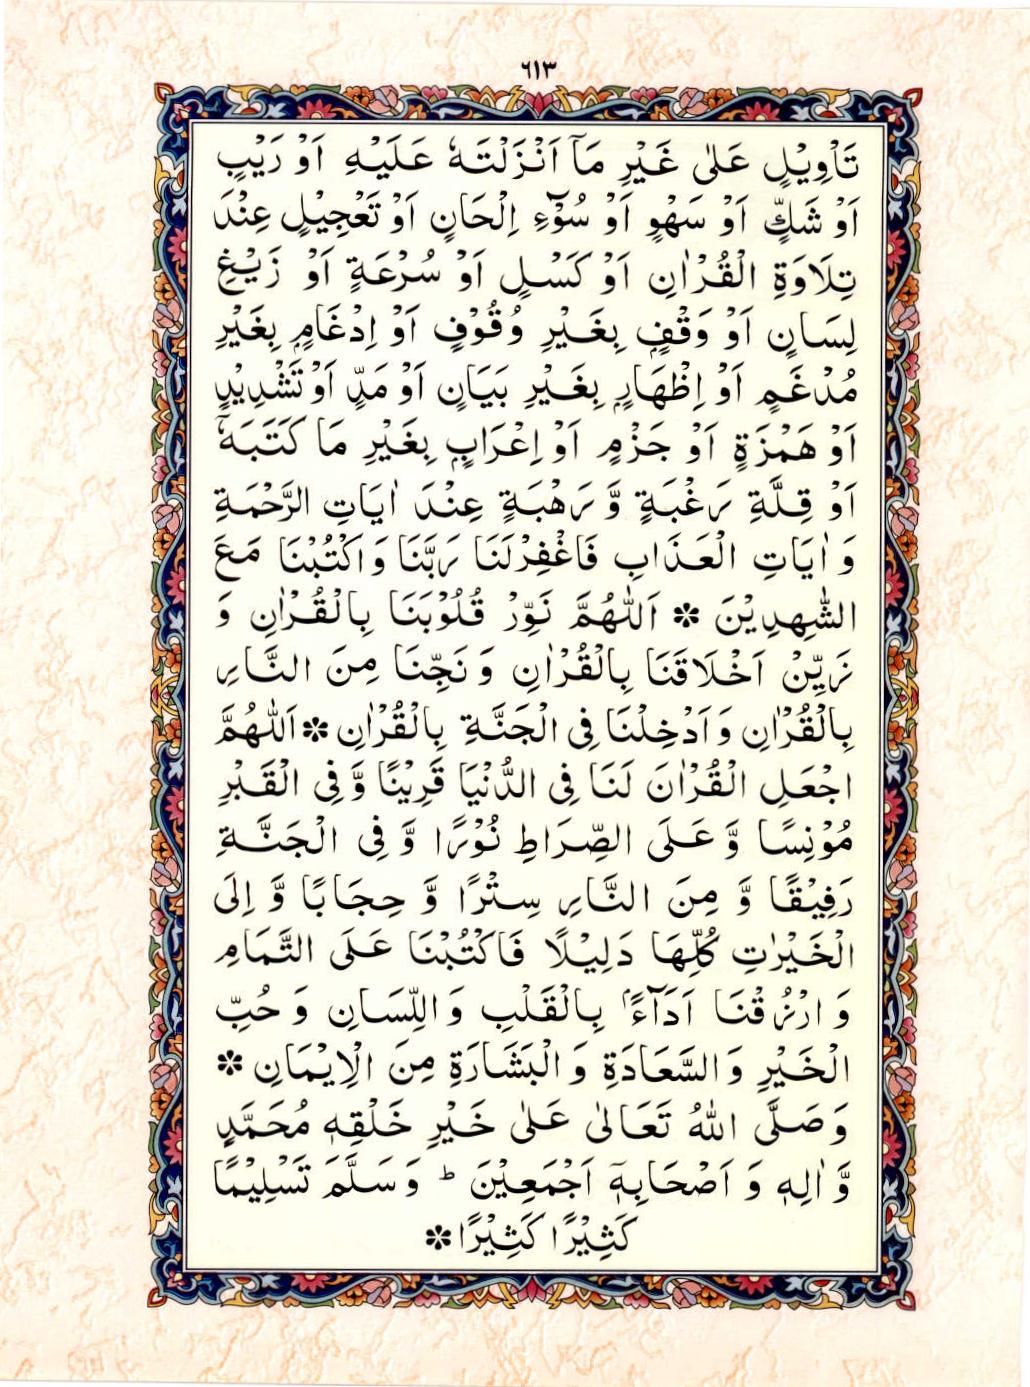 ٦١٣
تَاْوِيْلٍ عَلٰى غَيْرِ مَآ اَنْزَلْتَهٗ عَلَيْهِ اَوْ رَيْبٍ
اَوْ شَكٍّ اَوْ سَهْوٍ اَوْ سُوْٓءِ اِلْحَانٍ اَوْ تَعْجِيْلٍ عِنْدَ
تِلَاوَةِ الْقُرْاٰنِ اَوْ كَسْلٍ اَوْ سُرْعَةٍ اَوْ زَيْغِ
لِسَانٍ اَوْ وَقْفٍۭ بِغَيْرِ وُقُوْفٍ اَوْ اِدْغَامٍۭ بِغَيْرِ
مُدْغَمٍ اَوْ اِظْهَارٍۭ بِغَيْرِ بَيَانٍ اَوْ مَدٍّ اَوْ تَشْدِيْدٍ
اَوْ هَمْزَةٍ اَوْ جَزْمٍ اَوْ اِعْرَابٍۭ بِغَيْرِ مَا كَتَبَهٗ
اَوْ قِلَّةِ رَغْبَةٍ وَّ رَهْبَةٍ عِنْدَ اٰيَاتِ الرَّحْمَةِ
وَ اٰيَاتِ الْعَذَابِ فَاغْفِرْلَنَا رَبَّنَا وَاكْتُبْنَا مَعَ
الشّٰهِدِيْنَ ✽ اَللّٰهُمَّ نَوِّرْ قُلُوْبَنَا بِالْقُرْاٰنِ وَ
زَيِّنْ اَخْلَاقَنَا بِالْقُرْاٰنِ وَ نَجِّنَا مِنَ النَّارِ
بِالْقُرْاٰنِ وَ اَدْخِلْنَا فِى الْجَنَّةِ بِالْقُرْاٰنِ ✽ اَللّٰهُمَّ
اجْعَلِ الْقُرْاٰنَ لَنَا فِى الدُّنْيَا قَرِيْنًا وَّ فِى الْقَبْرِ
مُوْنِسًا وَّ عَلَى الصِّرَاطِ نُوْرًا وَّ فِى الْجَنَّةِ
رَفِيْقًا وَّ مِنَ النَّارِ سِتْرًا وَّ حِجَابًا وَّ اِلَى
الْخَيْرٰتِ كُلِّهَا دَلِيْلًا فَاكْتُبْنَا عَلَى التَّمَامِ
وَ ارْزُقْنَا اَدَآءًۢ بِالْقَلْبِ وَ اللِّسَانِ وَ حُبِّ
الْخَيْرِ وَ السَّعَادَةِ وَ الْبَشَارَةِ مِنَ الْاِيْمَانِ ✽
وَ صَلَّى اللّٰهُ تَعَالٰى عَلٰى خَيْرِ خَلْقِهٖ مُحَمَّدٍ
وَّ اٰلِهٖ وَ اَصْحَابِهٖٓ اَجْمَعِيْنَ ؕ وَ سَلَّمَ تَسْلِيْمًا
كَثِيْرًا كَثِيْرًا ✽